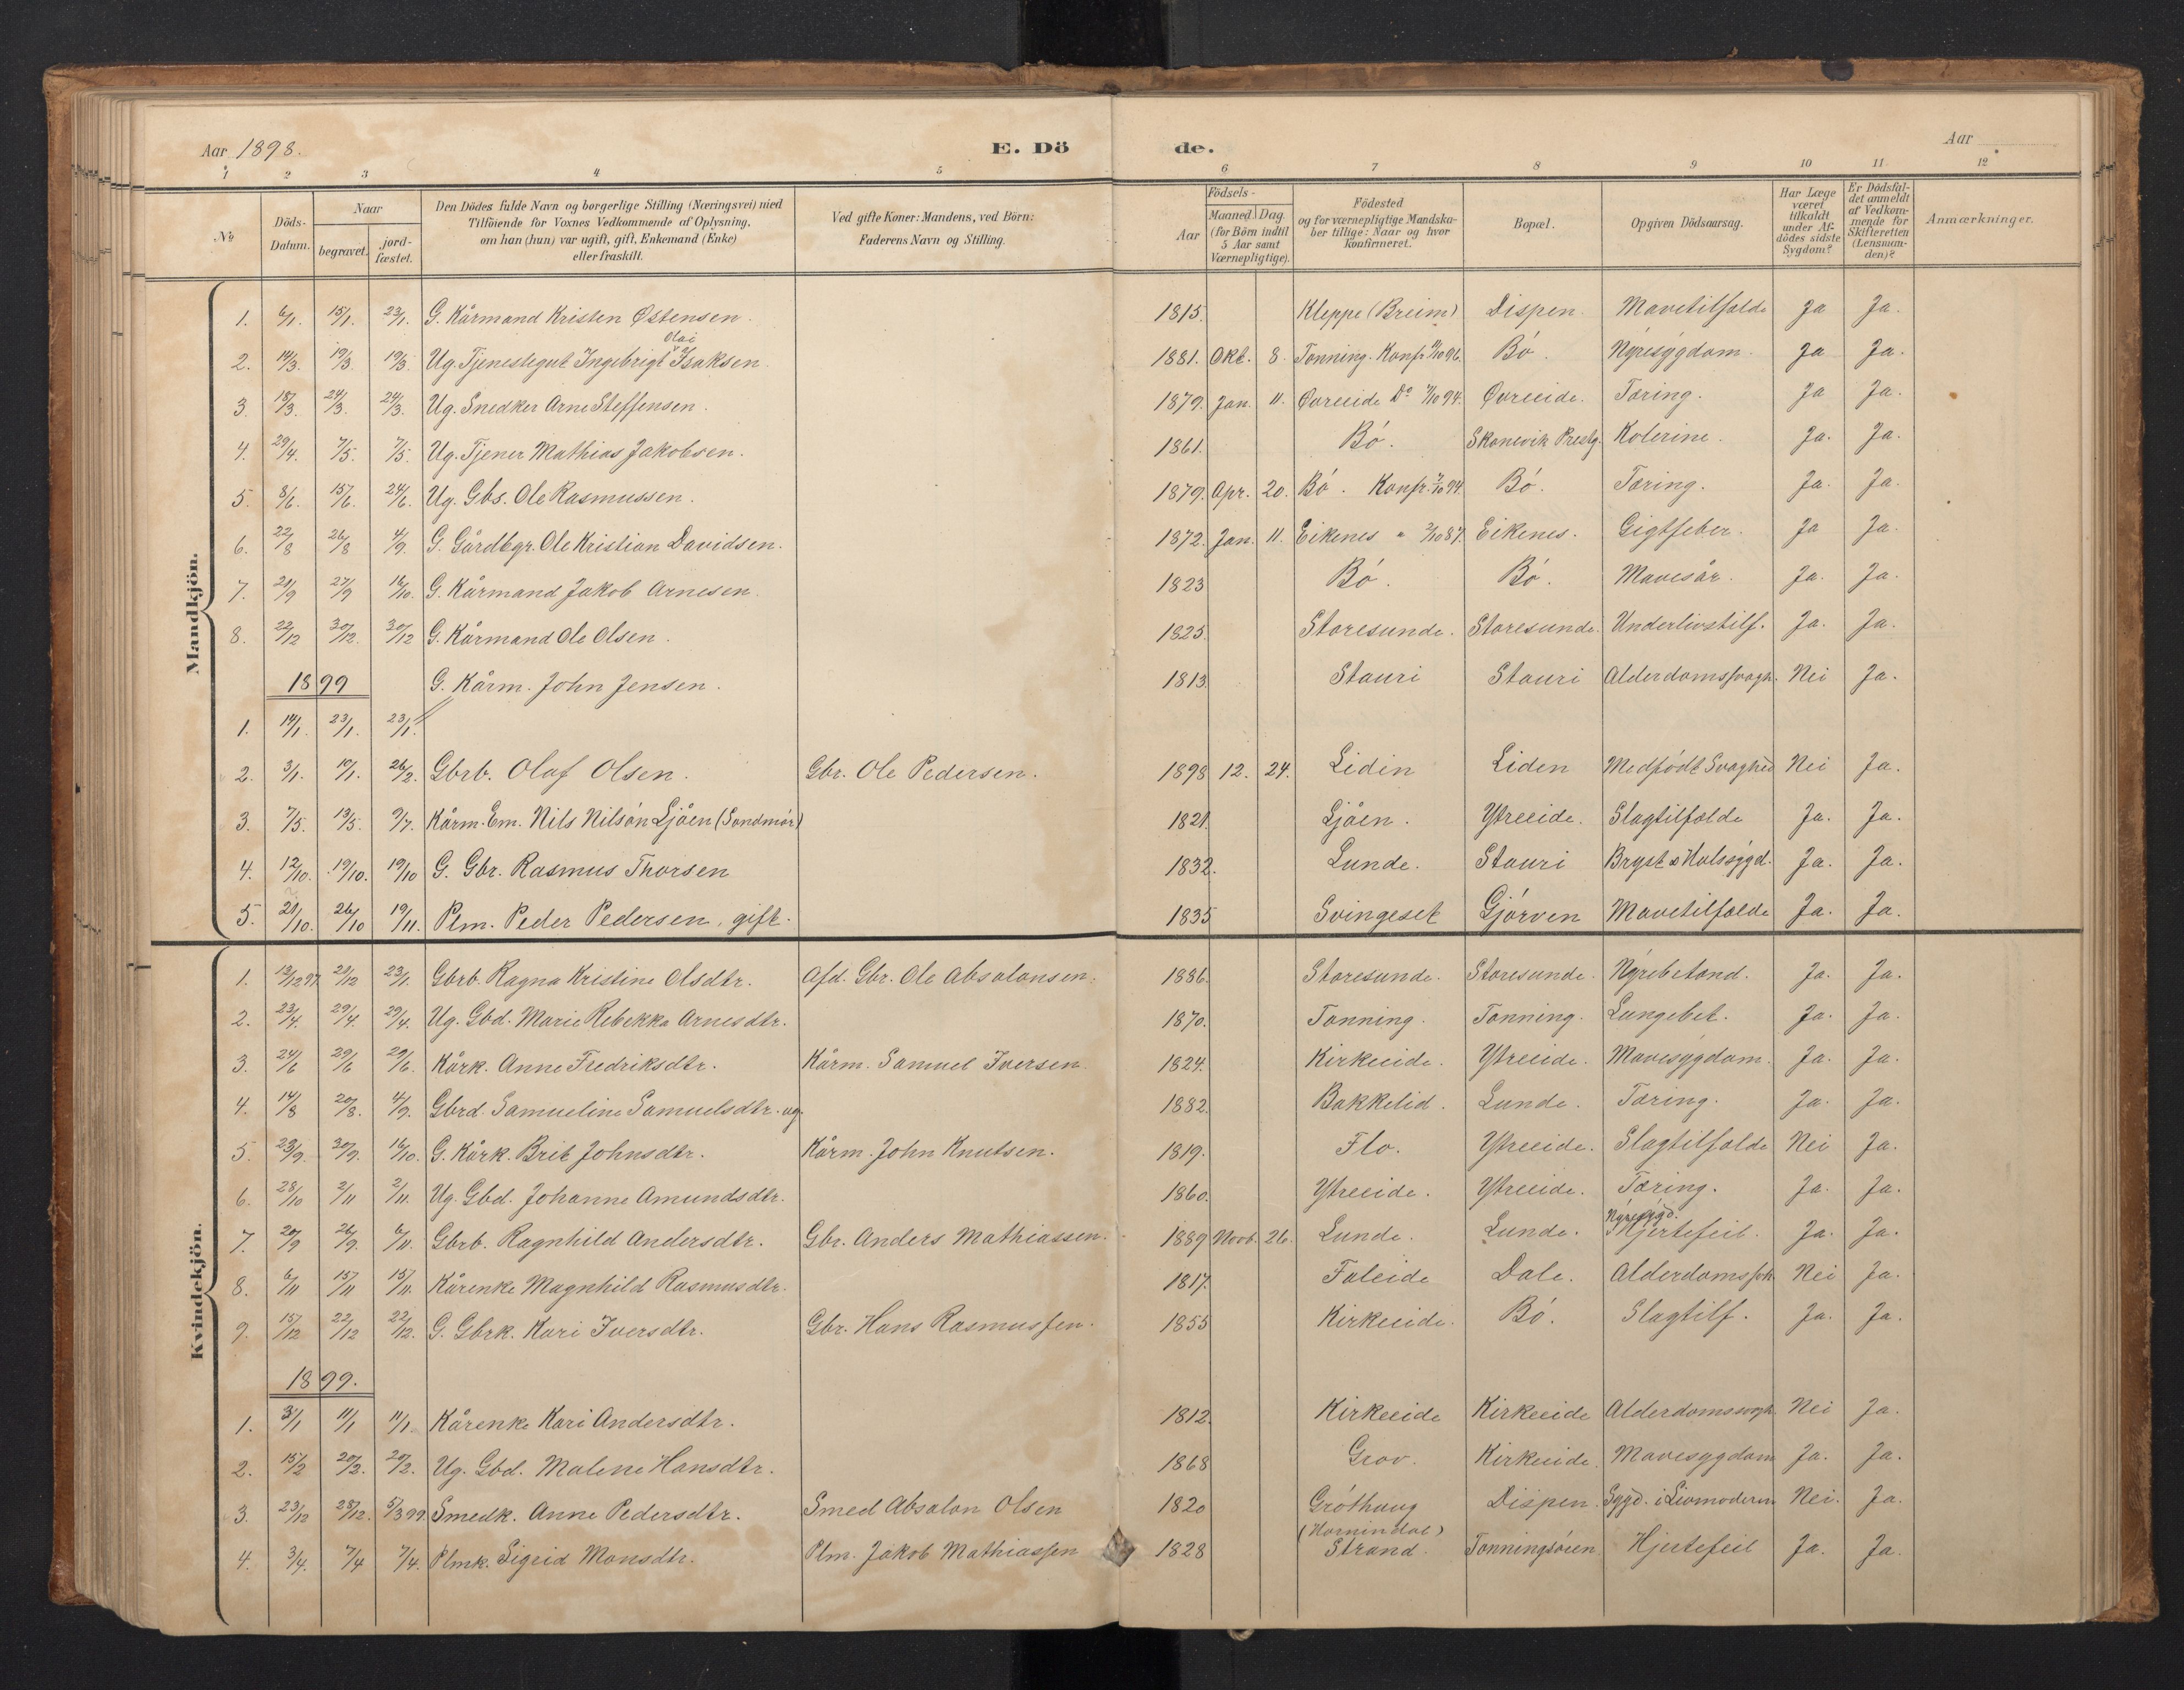 Aar 1898. E. Dö de. Aar
1 2 3 4 5 6 7 8 9 10 11 12
No Döds-Datum. Naar begravet. jordfæstet. Den Dödes fulde Navn og borgerlige Stilling (Næringsvei) med Tilföiende for Voxnes Vedkommende af Oplysning, om han (hun) var ugift, gift, Enkemand (Enke) eller fraskilt. Ved gifte Koner: Mandens, ved Börn: Faderens Navn og Stilling. Födsels- Aar Maaned. Dag. (for Börn indtil 5 Aar samt Værnepligtige). Födested og for værnepligtige Mandskaber tillige: Naar og hvor konfirmeret. Bopæl. Opgiven Dödsaarsag. Har Læge været tilkaldt under Afdödes sidste Sygdom? Er Dödsfaldet anmeldt af Vedkommende for Skifteretten (Lensmanden)? Anmærkninger.
Mandkjön.
1. 6/1. 15/1. 23/1. G. Kårmand Kristen Østensen. 1815. Kleppe (Breim) Dispen. Mavetilfælde Ja Ja.
Olai
2. 14/3. 19/3. 19/3. Ug. Tjenestegut Ingebrigt Isaksen. 1881. Okt. 8. Tonning. Konfr. 96. Bö. Nyresygdom. Ja Ja.
3. 18/3. 24/3. 24/3. Ug. Snedker Arne Steffensen. 1879. Jan. 11. Øvreeide Do 94. Øvreeide. Tæring. Ja Ja.
4. 29/4. 7/5. 7/5. Ug. Tjener Mathias Jakobsen. 1861. Bö. Skonevik Prestg. Kolerine. Ja. Ja.
5. 8/6. 15/6. 24/6. Ug. Gbs. Ole Rasmussen. 1879. Apr. 20. Bö. Konfr. 7/10 94 Bö. Tæring. Ja. Ja.
6. 22/8 26/8 4/9. G. Gårdbgr. Ole Kristian Davidsen. 1872. Jan. 11. Eikenes " 2/10 87. Eikenes. Gigtfeber. Ja Ja.
7. 21/9 27/9 16/10. G. Kårmand Jakob Arnesen. 1823 Bö. Bö. Mavesår. Ja. Ja.
8. 22/12 30/12. 30/12 G. Kårmand Ole Olsen. 1825. Storesunde. Storesunde. Underlivstilf. Ja. Ja.
1899 G. Kårm. John Jensen. 1813. Stauri Stauri Alderdomssvagh. Nei Ja.
1. 14/1. 23/1. 23/1.
2. 3/1. 10/1. 26/2. Gbrb. Olaf Olsen. Gbr. Ole Pedersen. 1898 12. 24. Lidin Liden Medfödt Svaghed Nei Ja.
3. 7/5. 13/5. 9/7. Kårm. Em. Nils Nilsön Ljåen (Sondmör) 1821. Ljåen. Ytreeide. Slagtilfælde Ja. Ja.
4. 12/10. 19/10. 19/10 G. Gbr. Rasmus Thorsen 1832. Lunde. Stauri Bryst o Halssygd. Ja. Ja.
5. 21/10. 26/10 19/11. Plm. Peder Pedersen, gift. 1835 Svingeset Gjörven Mavetilfælde Ja. Ja.
Kvindekjön.
1. 13/12 97. 21/12 23/1. Gbrb. Ragna Kristine Olsdtr. Afd. Gbr. Ole Absalonsen. 1886. Storesunde. Storesunde. Nyrebetænd. Ja. Ja.
2. 23/4. 29/4. 29/4. Ug. Gbd. Marie Rebekka Arnesdtr. 1870. Tonning. Tonning. Lungebet. Ja. Ja.
3. 24/6 29/6 29/6. Kårk. Anne Fredriksdtr. Kårm. Samuel Iversen. 1824. Kirkeeide. Ytreeide. Mavesygdom. Ja. Ja.
4. 14/8 20/8. 4/9. Gbrd. Samueline Samuelsdtr. ug. 1882. Bakkelid. Lunde. Tæring. Ja. Ja.
5. 23/9. 30/9. 16/10. G. Kårk. Brit Johnsdtr. Kårm. John Knutsen. 1819. Flo. Ytreeide. Slagtilfælde Nei Ja.
6. 28/10 2/11 2/11. Ug. Gbd. Johanne Amundsdtr. 1860. Ytreeide. Ytreeide. Tæring. Ja. Ja.
Nyresygd.
7. 20/9 26/9. 6/11. Gbrb. Ragnhild Andersdtr. Gbr. Anders Mathiassen. 1889 Novb. 26. Lunde. Lunde. Hjertefeil. Ja. Ja.
8. 6/11 15/11 15/11. Kårenke Magnhild Rasmusdtr. 1817. Faleide Dale. Alderdoms Nei Ja.
9. 15/12 22/12 22/12. G. Gbrk. Kari Iversdtr. Gbr. Hans Rasmussen. 1855 Kirkeeide. Bö. Slagtilf. Ja. Ja.
1899.
1. 3/1 11/1 11/1. Kårenke Kari Andersdtr. 1812. Kirkeeide Kirkeeide Alderdomssvagh. Nei Ja.
2. 15/2 20/2. 20/2. Ug. Gbd. Malene Hansdtr. 1868 Grov. Kirkeeide. Mavesygdom Ja. Ja.
3. 23/12 28/12. 5/3 99. Smedk. Anne Pedersdtr. Smed Absalon Olsen 1820 Gröthaug Dispen. Sygd. i Livmoderen Nei. Ja.
(Hornindal)
4. 3/4. 7/4 7/4. Plmk. Sigrid Monsdtr. Plm. Jakob Mathiassen 1828 Strand. Tonningsöien. Hjertefeil Ja. Ja.